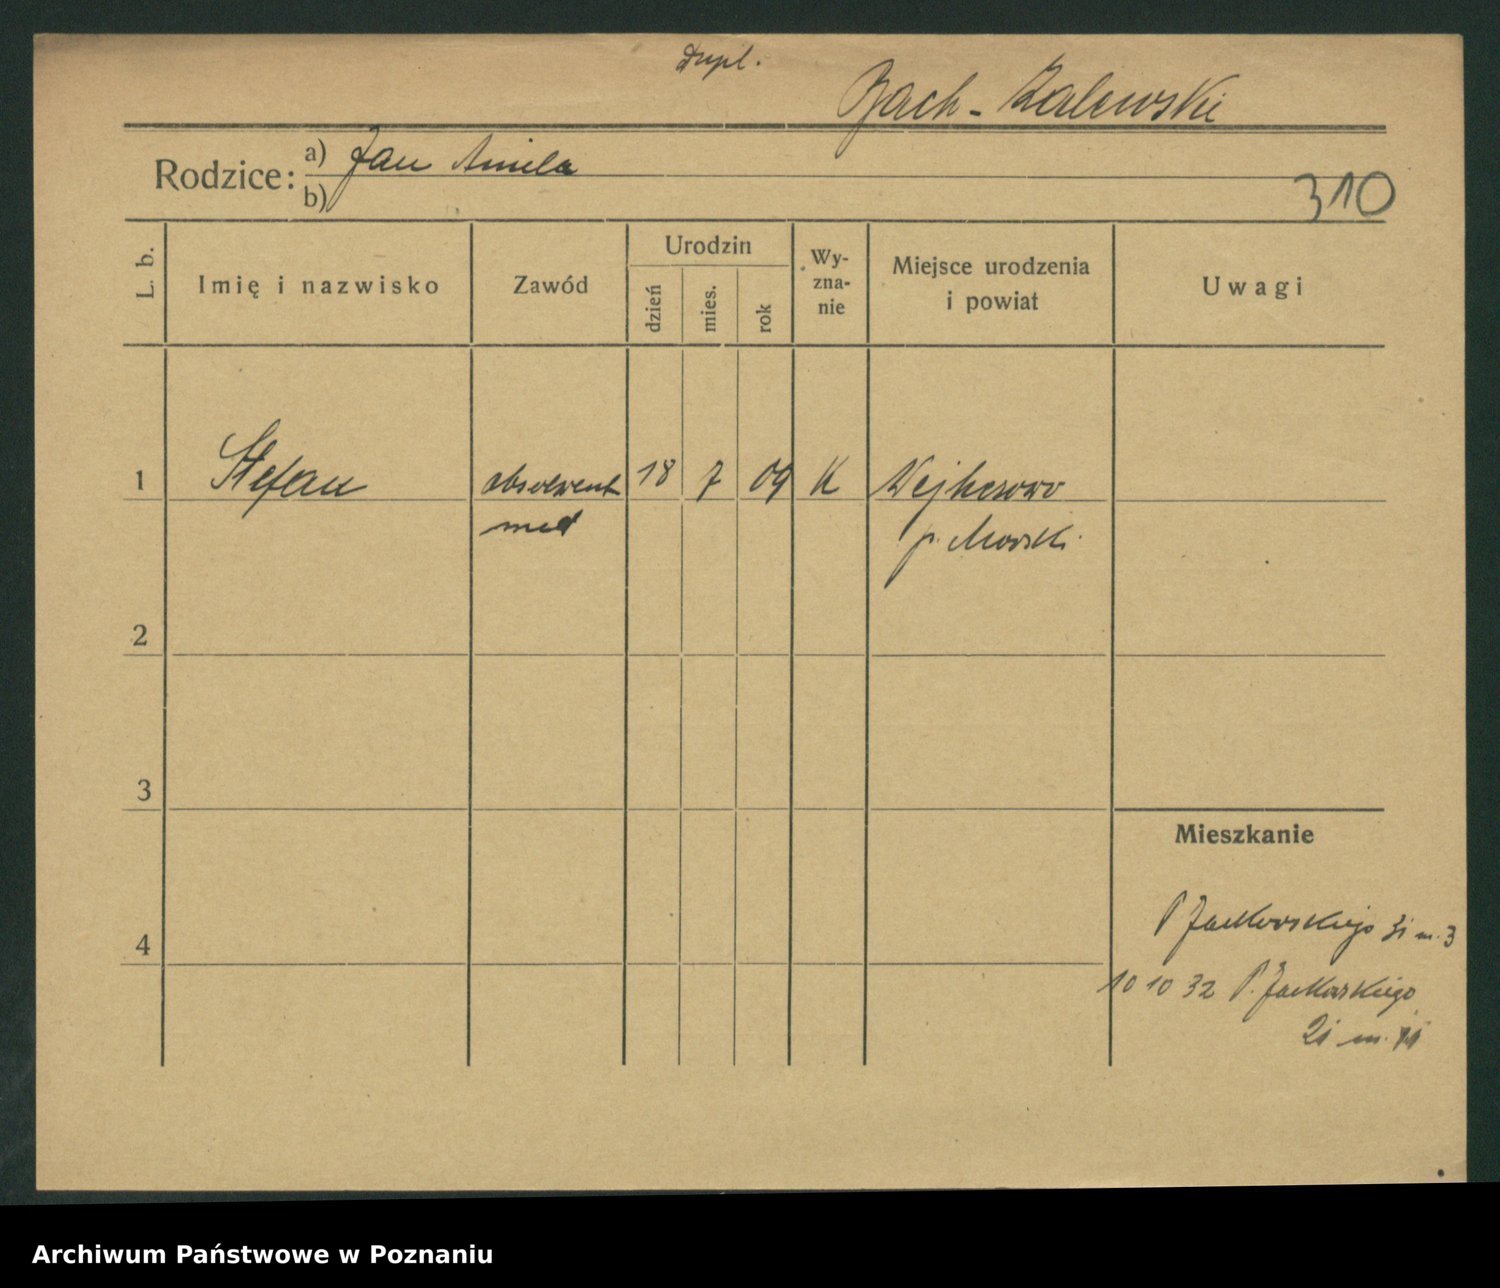 Dupl.
Bach-Zalewski
Rodzice: a) Jan Aniela
b)
310
L. b. Imię i nazwisko Zawód Urodzin dzień mies. rok Wy-zna-nie Miejsce urodzenia i powiat Uwagi
1 Stefan absolwent 18 7 09 K Wejherowo
med p. Morski
2
3
Mieszkanie
P Jackowskiego 31 m. 3
4
10 10 32 P. Jackowskiego
21 m. 11
Archiwum Państwowe w Poznaniu